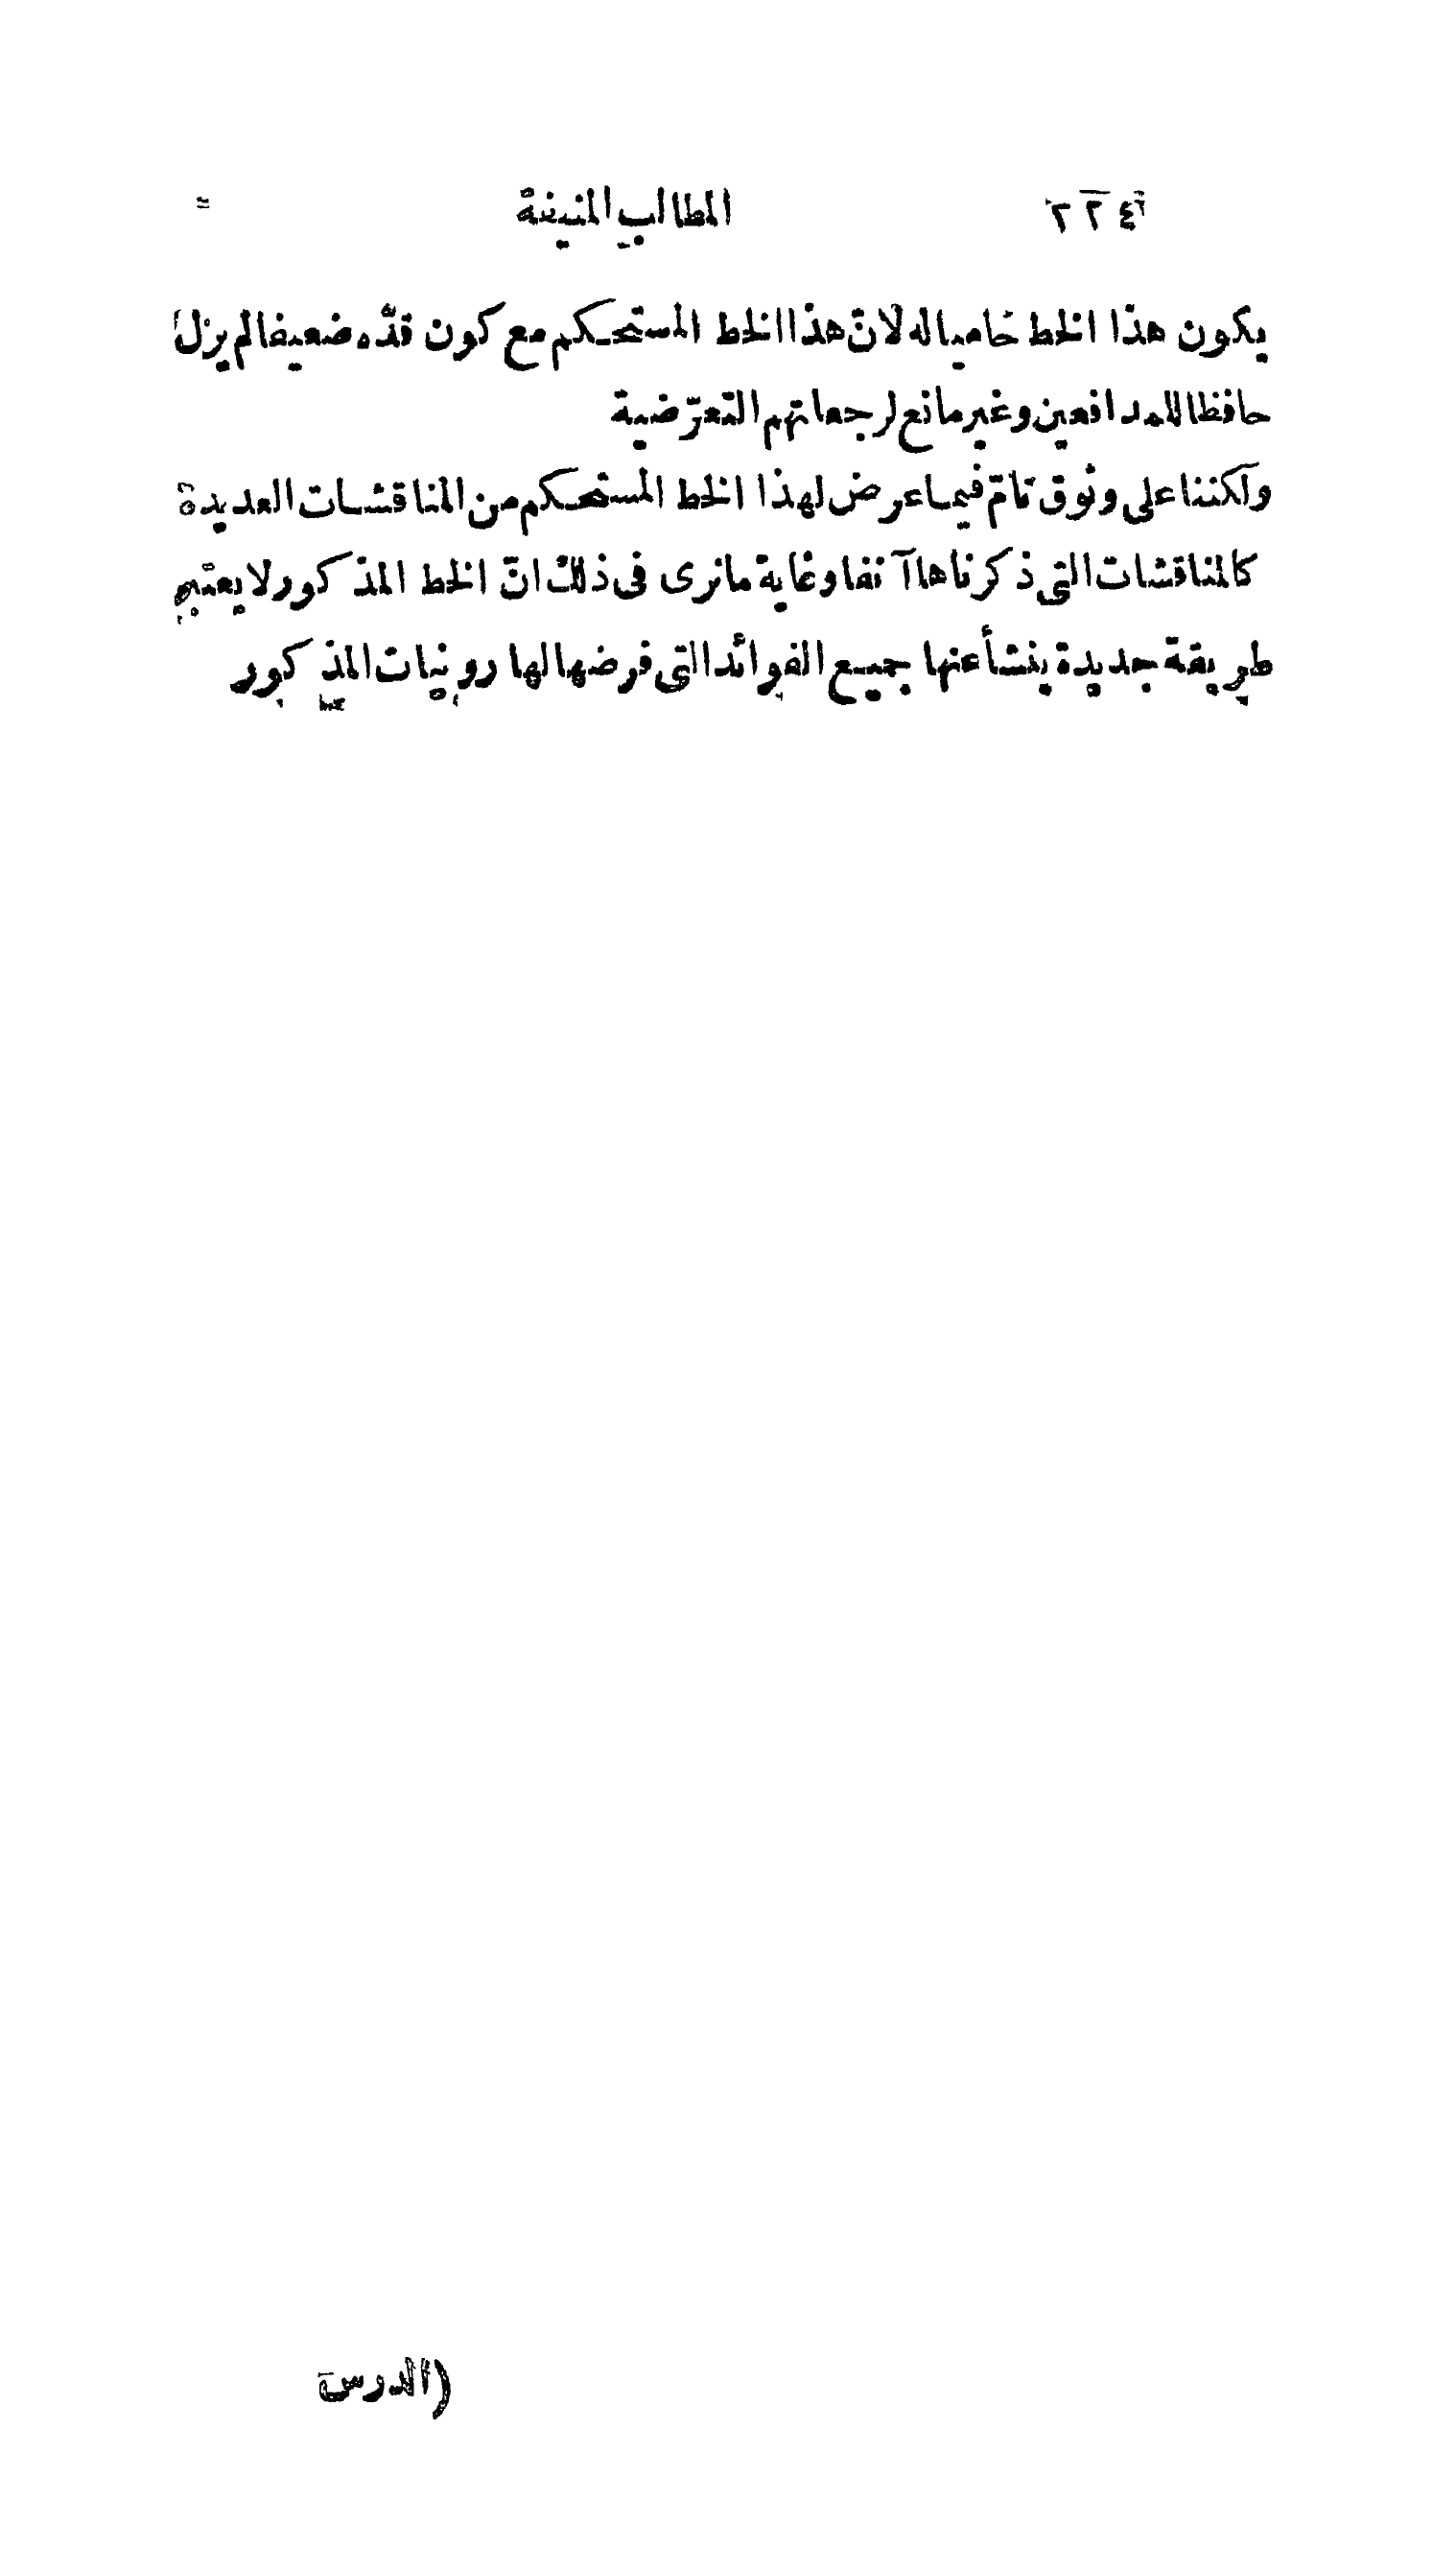 ٢٢٤ المطالب المنيفة
يكون هذا الخط حاميا له لانّ هذا الخط المستحكم مع كون قدّه ضعيفا لم يزل
حافظا للمدافعين وغير مانع لرجعاتهم التعرّضية
ولكننا على وثوق تامّ فيما عرض لهذا الخط المستحكم من المناقشات العديدة
كالمناقشات التى ذكرناها آنفا وغاية ما نرى فى ذلك انّ الخط المذكور لا يعتبر
طريقة جديدة ينشأ عنها جميع الفوائد التى فرضها لها رونيات المذكور
(الدرس